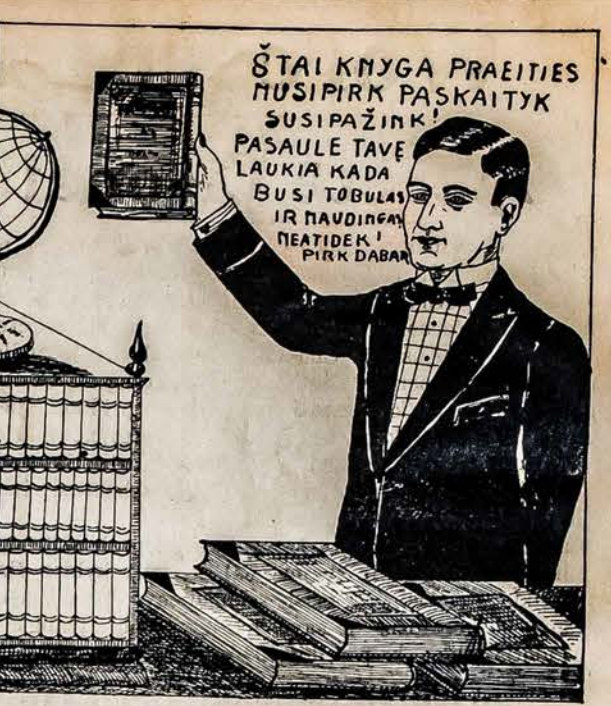 ŠTAI KNYGA PRAEITIES
NUSIPIRK PASKAITYK
SUSIPAŽINK!
PASAULE TAVĘ
LAUKIA KADA
BUSI TOBULAS
IR NAUDINGAS
NEATIDEK!
PIRK DABAR